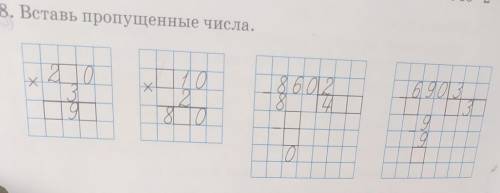 8. Вставь пропущенные числа.
2 0
× 3
9
1 0
× 2
8 0
8602
- 8 4
-
0
6903
- 3
9
- 9